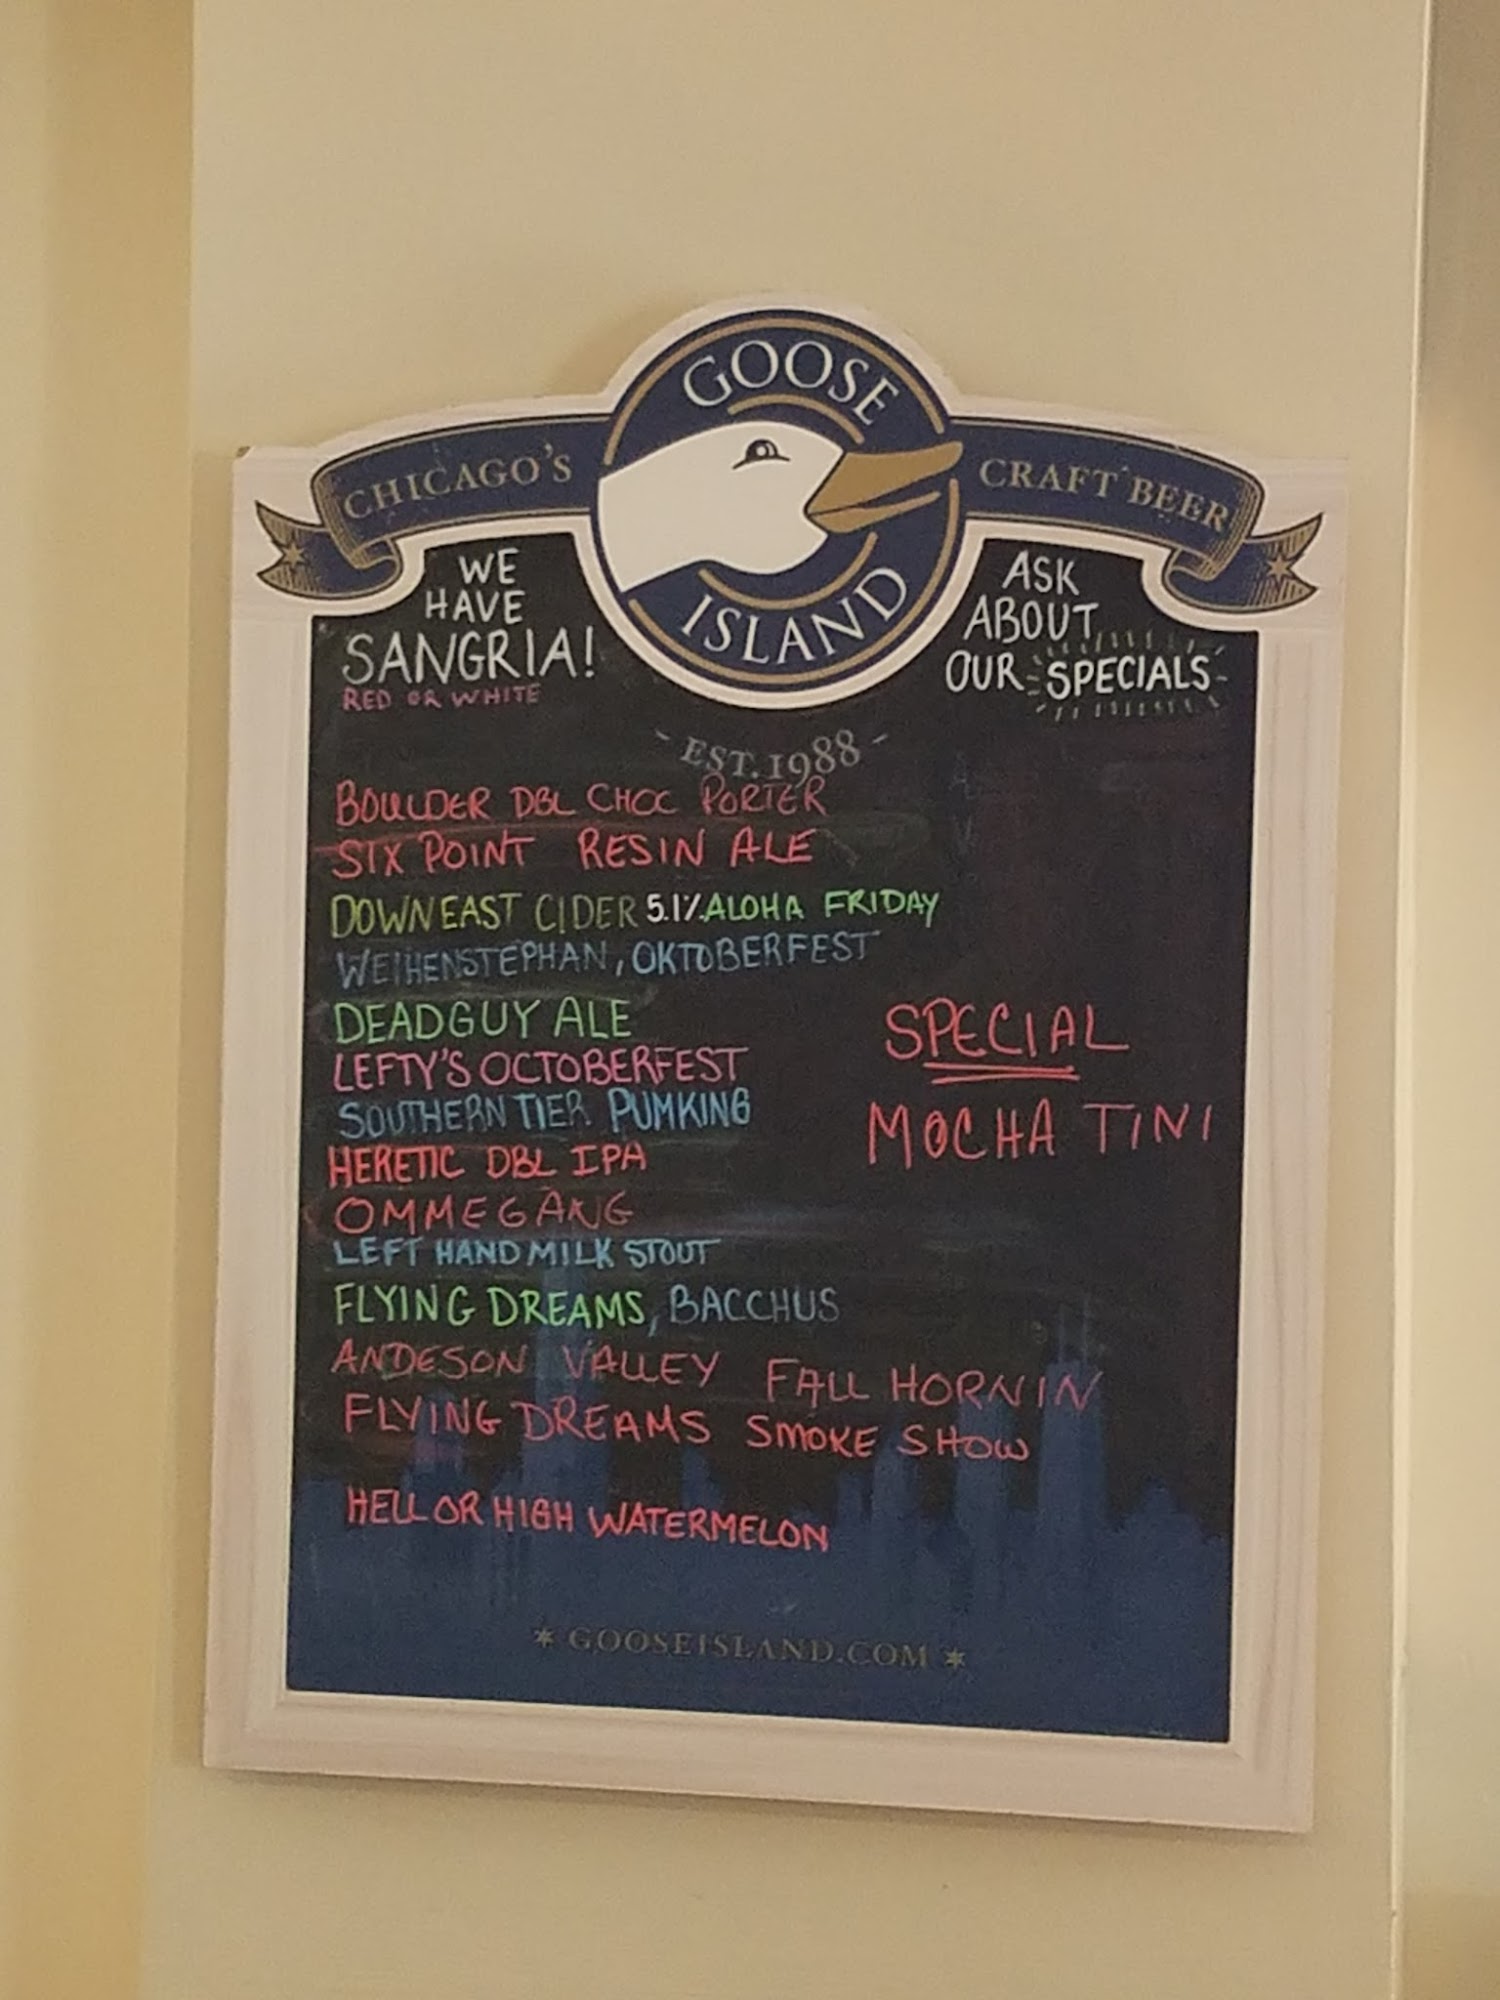 GOOSE
ISLAND
CHICAGO'S
CRAFT BEER
WE
HAVE
SANGRIA!
RED OR WHITE
ASK
ABOUT
OUR SPECIALS
- EST. 1988 -
BOULDER DBL CHOC PORTER
SIX POINT RESIN ALE
DOWNEAST CIDER 5.1% ALOHA FRIDAY
WEIHENSTEPHAN, OKTOBERFEST
DEADGUY ALE
LEFTY'S OCTOBERFEST
SOUTHERN TIER PUMKING
HERETIC DBL IPA
OMMEGANG
LEFT HAND MILK STOUT
FLYING DREAMS, BACCHUS
ANDESON VALLEY FALL HORNIN
FLYING DREAMS SMOKE SHOW
HELL OR HIGH WATERMELON
SPECIAL
MOCHA TINI
* GOOSEISLAND.COM *